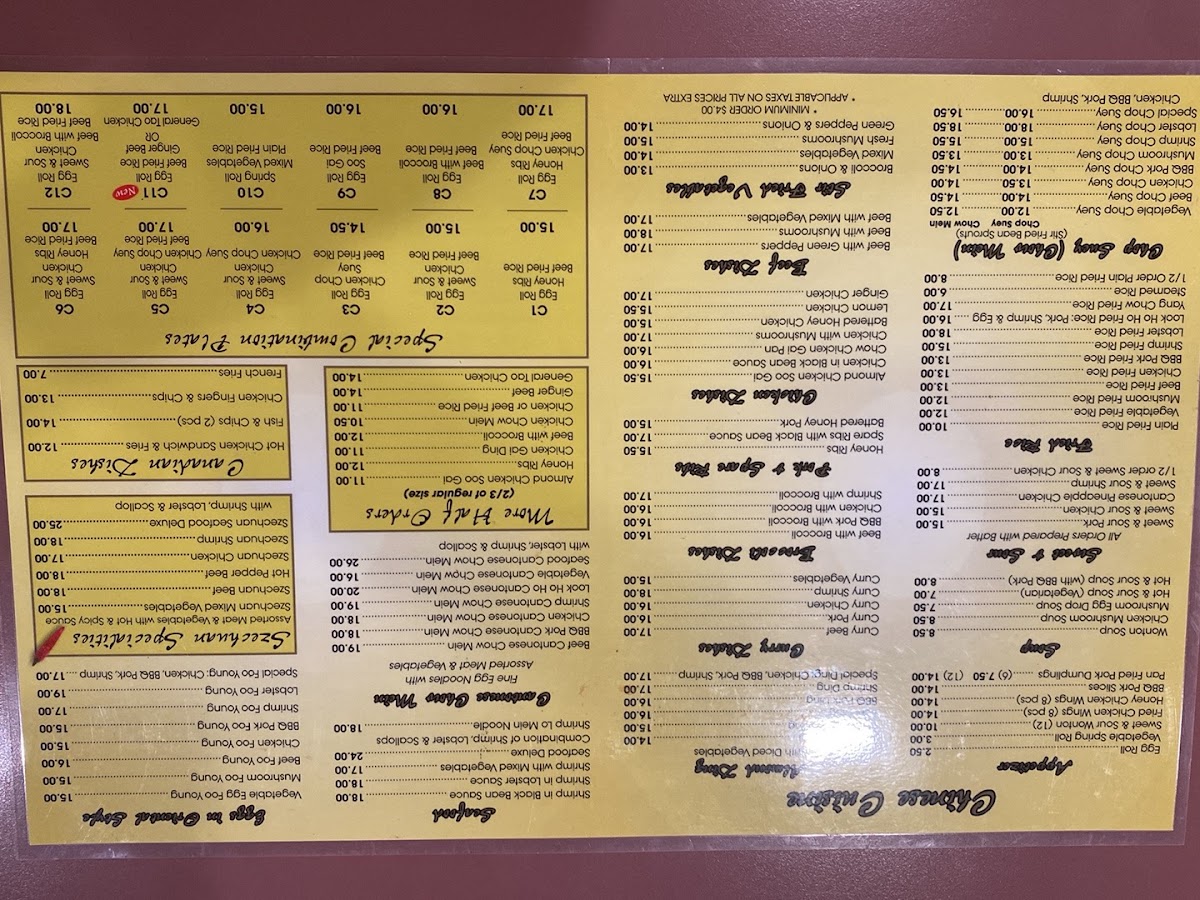 Chinese Cuisine
Appetizer
Egg Roll 2.50
Vegetable Spring Roll 3.00
Sweet & Sour Wonton (12) 10.00
Fried Chicken Wings (8 pcs) 14.00
Honey Chicken Wings (8 pcs) 14.00
BBQ Pork Slices 14.00
Pan Fried Pork Dumplings (6) 7.50 (12) 14.00
Soup
Wonton Soup 8.50
Chicken Mushroom Soup 8.50
Mushroom Egg Drop Soup 7.50
Hot & Sour Soup (Vegetation) 7.00
Hot & Sour Soup (with BBQ Pork) 8.00
Sweet & Sour
All Orders Prepared with Batter
Sweet & Sour Pork 15.00
Sweet & Sour Chicken 15.00
Cantonese Pineapple Chicken 17.00
Sweet & Sour Shrimp 17.00
1/2 order Sweet & Sour Chicken 8.00
Fried Rice
Plain Fried Rice 10.00
Vegetable Fried Rice 12.00
Mushroom Fried Rice 12.00
Beef Fried Rice 13.00
Chicken Fried Rice 13.00
BBQ Pork Fried Rice 13.00
Shrimp Fried Rice 15.00
Lobster Fried Rice 18.00
Look Ho Ho Fried Rice: Pork, Shrimp & Egg 16.00
Yang Chow Fried Rice 17.00
Steamed Rice 6.00
1/2 Order Plain Fried Rice 8.00
Chop Suey (Chow Mein)
(Stir Fried Bean Sprouts)
Chop Suey Chow Mein
Vegetable Chop Suey 12.00 12.50
Beef Chop Suey 14.00 14.50
Chicken Chop Suey 13.50 14.00
BBQ Pork Chop Suey 14.00 14.50
Mushroom Chop Suey 13.00 13.50
Shrimp Chop Suey 15.00 15.50
Lobster Chop Suey 18.00 18.50
Special Chop Suey 16.00 16.50
Chicken, BBQ Pork, Shrimp
Almond Ding
with Diced Vegetables
14.00
15.00
16.00
BBQ Pork Ding 16.00
Shrimp Ding 17.00
Special Ding: Chicken, BBQ Pork, Shrimp 17.00
Curry Dishes
Curry Beef 17.00
Curry Pork 16.00
Curry Chicken 16.00
Curry Shrimp 18.00
Curry Vegetables 15.00
Broccoli Dishes
Beef with Broccoli 16.00
BBQ Pork with Broccoli 16.00
Chicken with Broccoli 16.00
Shrimp with Broccoli 17.00
Pork & Spare Ribs
Honey Ribs 15.50
Spare Ribs with Black Bean Sauce 17.00
Battered Honey Pork 15.00
Chicken Dishes
Almond Chicken Soo Gai 15.50
Chicken in Black Bean Sauce 16.00
Chow Chicken Gai Pan 16.00
Chicken with Mushrooms 17.00
Battered Honey Chicken 15.00
Lemon Chicken 15.50
Ginger Chicken 17.00
Beef Dishes
Beef with Green Peppers 17.00
Beef with Mushrooms 18.00
Beef with Mixed Vegetables 17.00
Stir Fried Vegetables
Broccoli & Onions 13.00
Mixed Vegetables 14.00
Fresh Mushrooms 15.00
Green Peppers & Onions 14.00
* MINIMUM ORDER $4.00
* APPLICABLE TAXES ON ALL PRICES EXTRA
Seafood
Shrimp in Black Bean Sauce 18.00
Shrimp in Lobster Sauce 18.00
Shrimp with Mixed Vegetables 17.00
Seafood Deluxe 24.00
Combination of Shrimp, Lobster & Scallops
Shrimp Mein Lo Noodle 18.00
Cantonese Chow Mein
Fine Egg Noodles with
Assorted Meat & Vegetables
Beef Cantonese Chow Mein 19.00
BBQ Pork Cantonese Chow Mein 18.00
Chicken Cantonese Chow Mein 18.00
Shrimp Cantonese Chow Mein 19.00
Look Ho Ho Cantonese Chow Mein 20.00
Vegetable Cantonese Chow Mein 16.00
Seafood Cantonese Chow Mein 26.00
with Lobster, Shrimp & Scallop
More Half Orders
(2/3 of regular size)
Almond Chicken Soo Gai 11.00
Honey Ribs 12.00
Chicken Gai Ding 11.00
Beef with Broccoli 12.00
Chicken Chow Mein 10.50
Chicken or Beef Fried Rice 11.00
Ginger Beef 14.00
General Tao Chicken 14.00
Eggs in Oriental Style
Vegetable Egg Foo Young 15.00
Mushroom Foo Young 15.00
Beef Foo Young 16.00
Chicken Foo Young 15.00
BBQ Pork Foo Young 15.00
Shrimp Foo Young 17.00
Lobster Foo Young 19.00
Special Foo Young: Chicken, BBQ Pork, Shrimp 17.00
Szechuan Specialities
Assorted Meat & Vegetables with Hot & Spicy Sauce
Szechuan Mixed Vegetables 15.00
Szechuan Beef 18.00
Hot Pepper Beef 18.00
Szechuan Chicken 17.00
Szechuan Shrimp 18.00
Szechuan Seafood Deluxe 25.00
with Shrimp, Lobster & Scallop
Canadian Dishes
Hot Chicken Sandwich & Fries 12.00
Fish & Chips (2 pcs) 14.00
Chicken Fingers & Chips 13.00
French Fries 7.00
Special Combination Plates
C1
Egg Roll
Honey Ribs
Beef Fried Rice
15.00
C2
Egg Roll
Sweet & Sour
Chicken
Beef Fried Rice
15.00
C3
Egg Roll
Chicken Chop
Suey
Beef Fried Rice
14.50
C4
Egg Roll
Sweet & Sour
Chicken
Chicken Chop Suey
16.00
C5
Egg Roll
Sweet & Sour
Chicken
Chicken Chop Suey
Beef Fried Rice
17.00
C6
Egg Roll
Sweet & Sour
Chicken
Honey Ribs
Beef Fried Rice
17.00
C7
Egg Roll
Honey Ribs
Chicken Chop Suey
Beef Fried Rice
17.00
C8
Egg Roll
Beef with Broccoli
Beef Fried Rice
16.00
C9
Egg Roll
Soo Gai
Beef Fried Rice
16.00
C10
Spring Roll
Mixed Vegetables
Plain Fried Rice
15.00
C11 New
Egg Roll
Beef Fried Rice
Ginger Beef
OR
General Tao Chicken
17.00
C12
Egg Roll
Sweet & Sour
Chicken
Beef with Broccoli
Beef Fried Rice
18.00